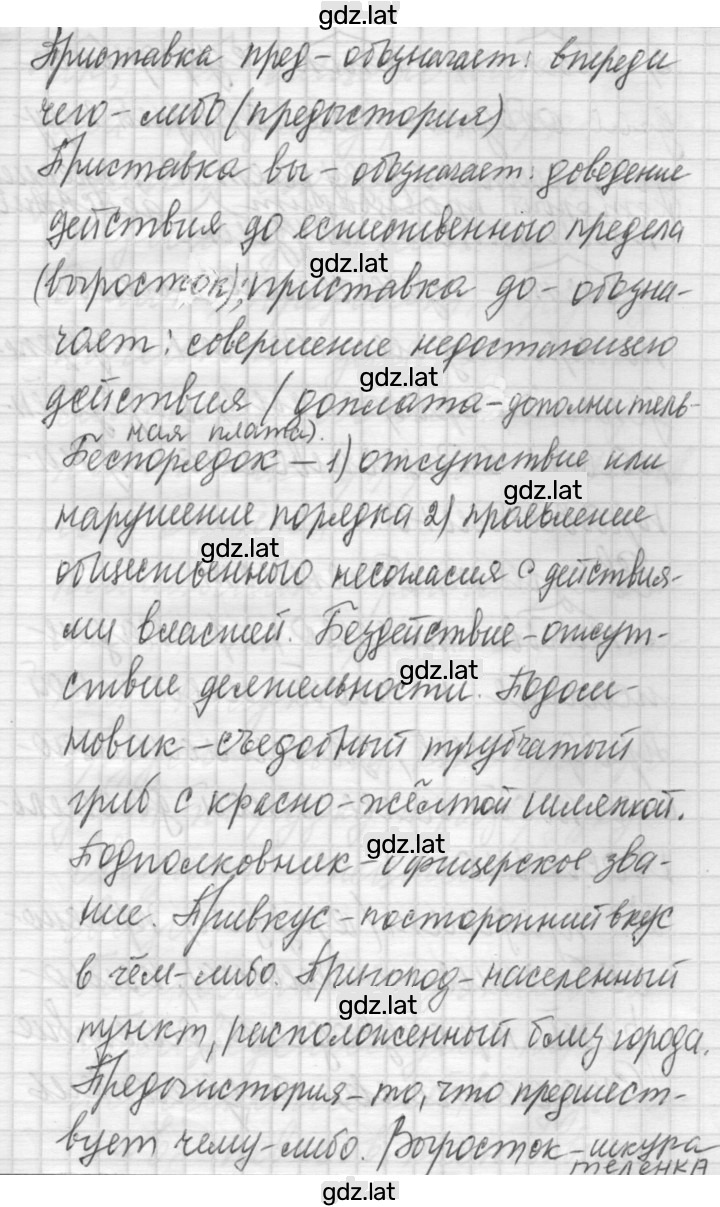 gdz.lat
Приставка пред- обозначает: впереди
чего-либо (предыстория)
Приставка вы- обозначает: доведение
действия до естественного предела
gdz.lat
(выросток); приставка до- обозна-
чает: совершение недостающего
gdz.lat
действия (доплата-дополнитель-
ная плата).
Беспорядок - 1) отсутствие или
gdz.lat
нарушение порядка 2) проявление
gdz.lat
общественного несогласия с действия-
ми властей. Бездействие-отсут-
gdz.lat
ствие деятельности. Подоси-
новик-съедобный трубчатый
гриб с красно-жёлтой шляпкой.
gdz.lat
Подполковник-офицерское зва-
ние. Привкус-посторонний вкус
в чём-либо. Пригород-населенный
gdz.lat
пункт, расположенный близ города.
Предыстория-то, что предшест-
вует чему-либо. Выросток-шкура
теленка
gdz.lat